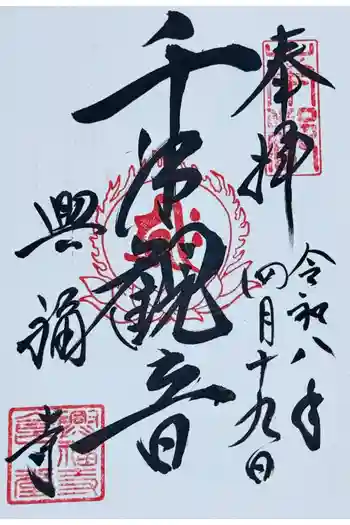 奉拝
令和八年
四月十九日
千手観音
興福寺